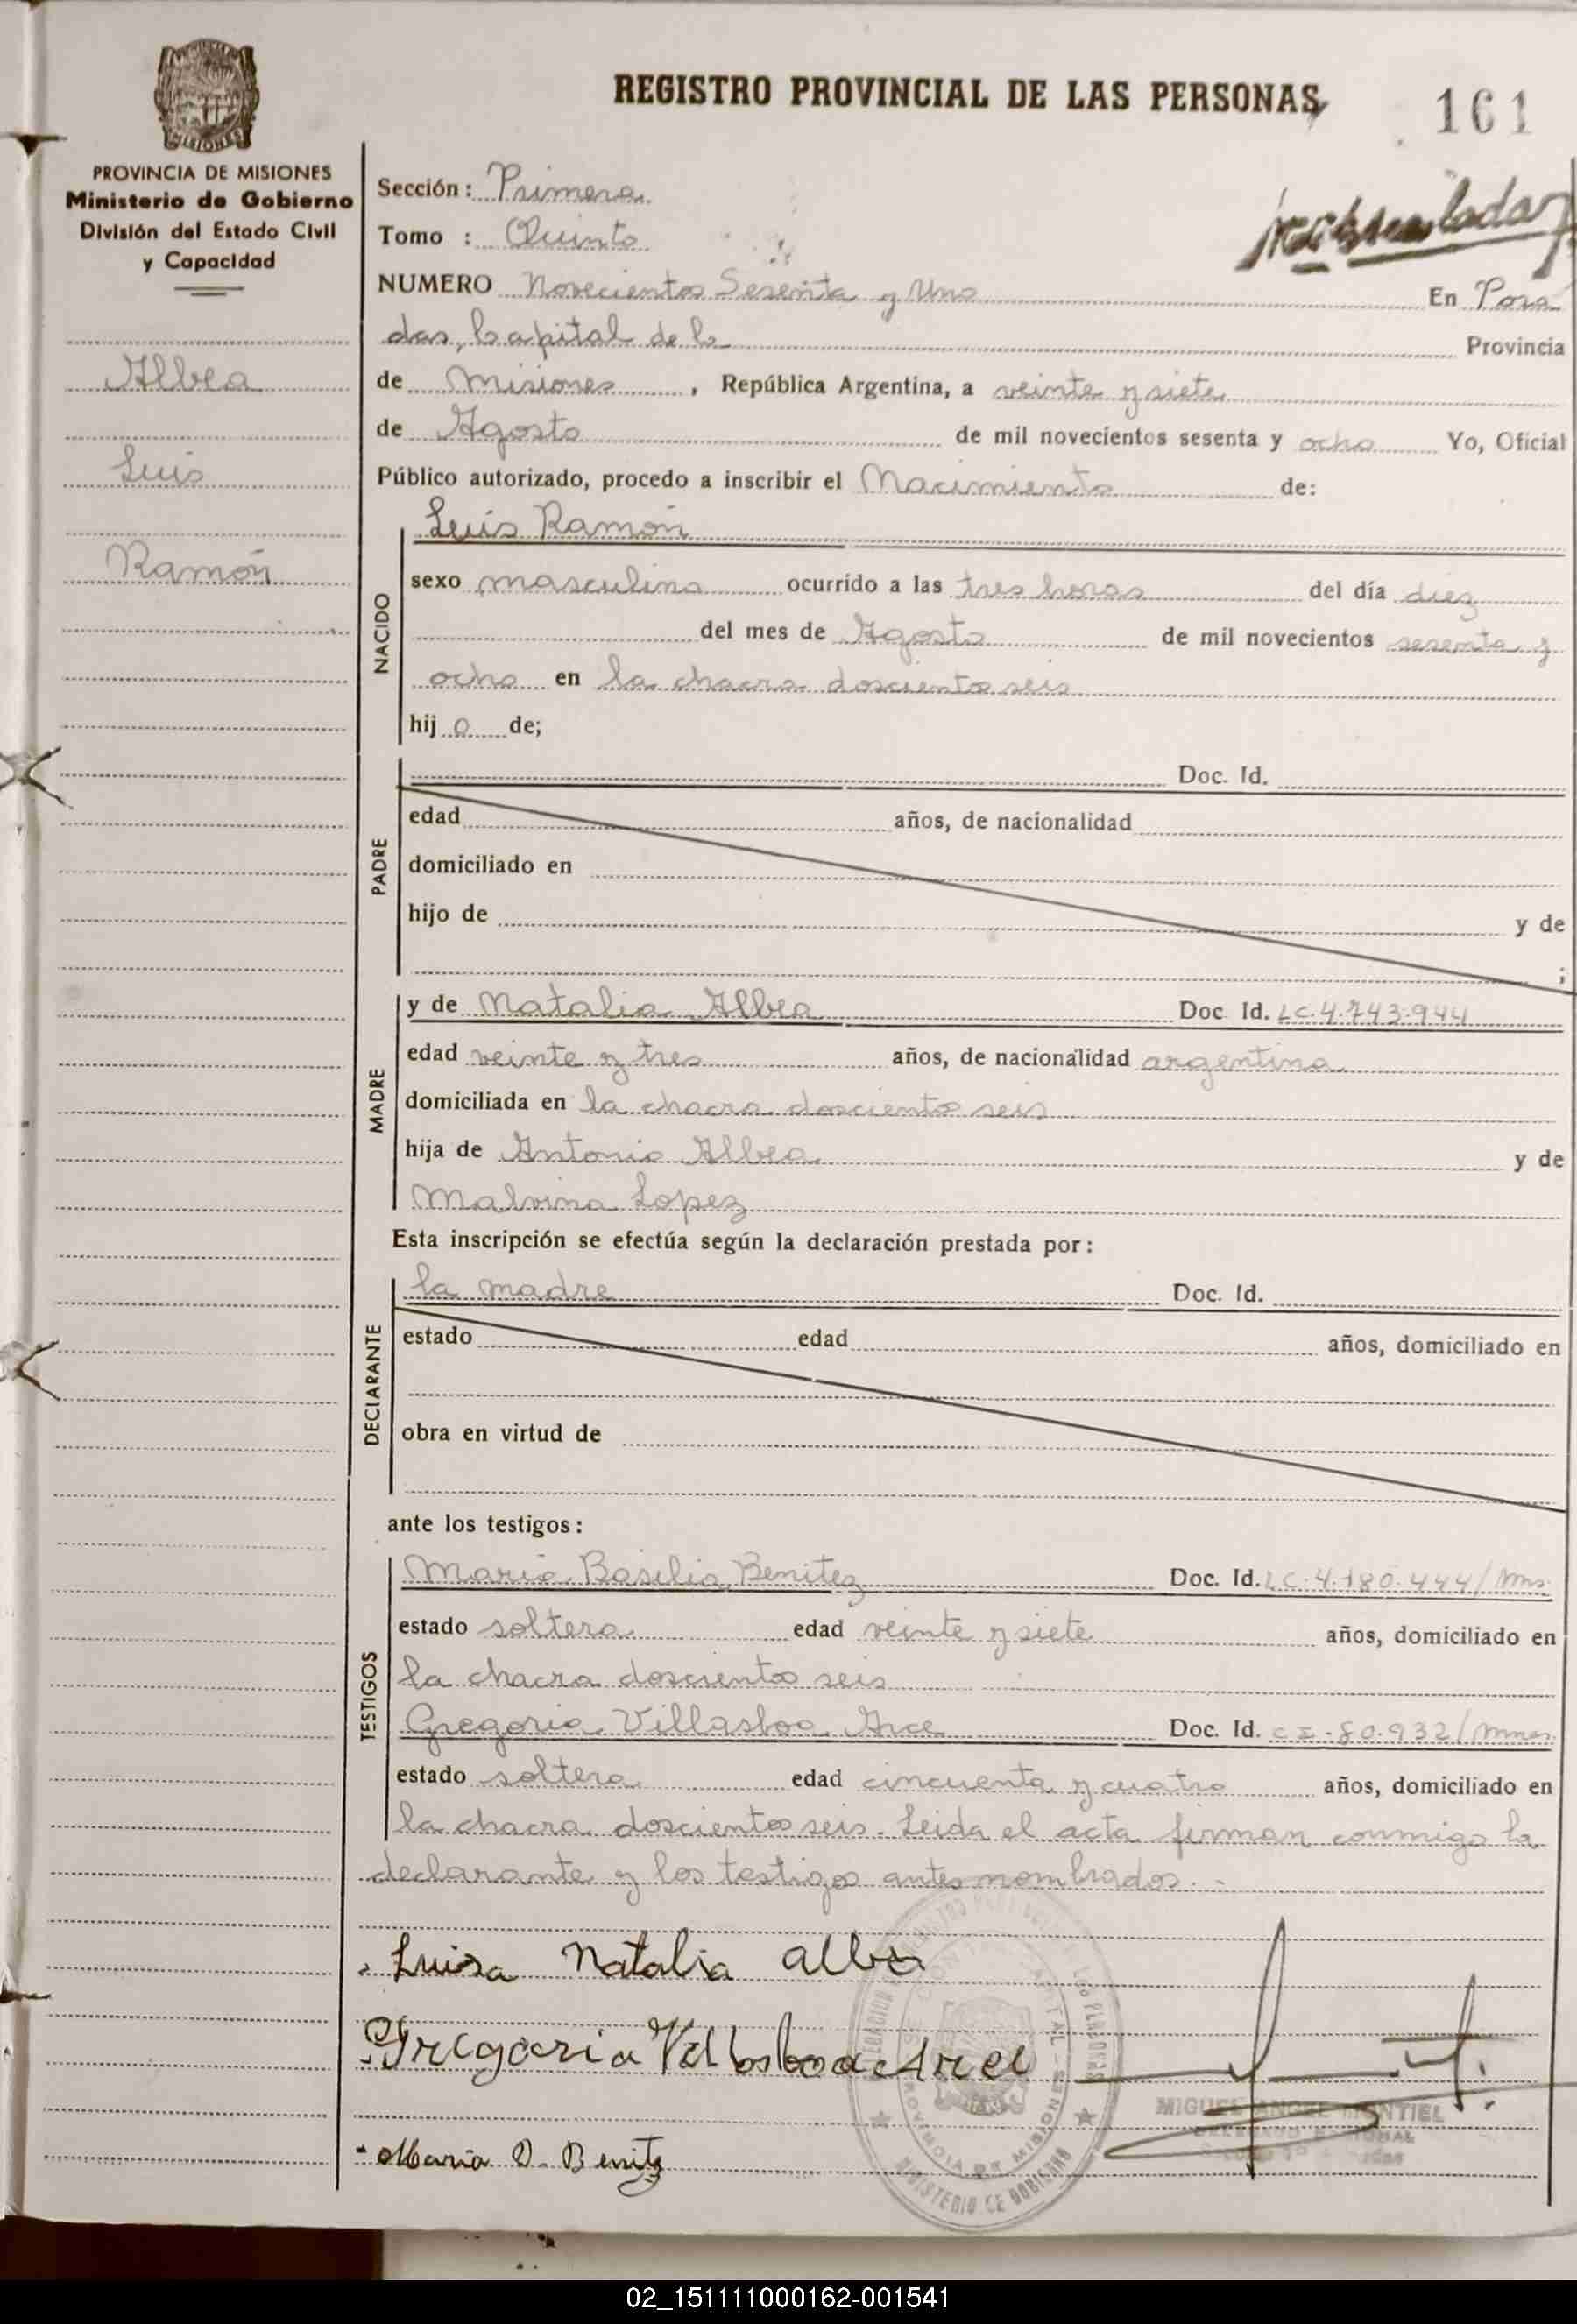 REGISTRO PROVINCIAL DE LAS PERSONAS
161
MISIONES
PROVINCIA DE MISIONES
Ministerio de Gobierno
División del Estado Civil
y Capacidad
Albea
Luis
Ramón
Sección: Primera
Tomo : Quinto
NUMERO Novecientos Sesenta y Uno En Posa
das, Capital de la Provincia
de Misiones, República Argentina, a veinte y siete
de Agosto de mil novecientos sesenta y ocho Yo, Oficial
Público autorizado, procedo a inscribir el Nacimiento de:
NACIDO
Luis Ramón
sexo masculino ocurrido a las tres horas del día diez
del mes de Agosto de mil novecientos sesenta y
ocho en la chacra dosciento seis
hij o de;
PADRE
Doc. Id.
edad años, de nacionalidad
domiciliado en
hijo de y de
;
MADRE
y de Natalia Albea Doc. Id. LC.4.743.944
edad veinte y tres años, de nacionalidad argentina
domiciliada en la chacra dosciento seis
hija de Antonio Albea y de
Malvina Lopez
Esta inscripción se efectúa según la declaración prestada por:
DECLARANTE
la madre Doc. Id.
estado edad años, domiciliado en
obra en virtud de
ante los testigos:
TESTIGOS
Maria Basilia Benitez Doc. Id. LC.4.180.444/Mns.
estado soltera edad veinte y siete años, domiciliado en
la chacra doscientos seis
Gregoria Villasboa Arce Doc. Id. CI-80.932/Mnes.
estado soltera edad cincuenta y cuatro años, domiciliado en
la chacra doscientos seis. Leida el acta firman conmigo la
declarante y los testigos antes nombrados.-
Luisa Natalia Albea
Gregoria Villosboa Arce
Maria B. Benitz
MIGUEL ANGEL MONTIEL
PROVINCIA DE MISIONES
MINISTERIO DE GOBIERNO
02_151111000162-001541